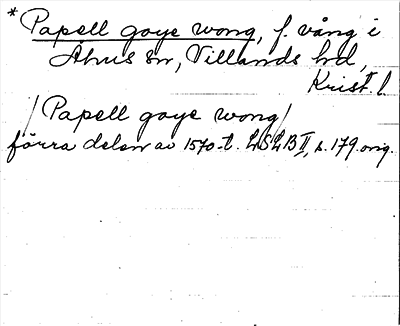 * Papell gaye wong, f. vång i
Åhus sn, Villands hd,
Krist. l.
/Papell gaye wong/
förra delen av 1570-t. LSLB II, s. 179. orig.